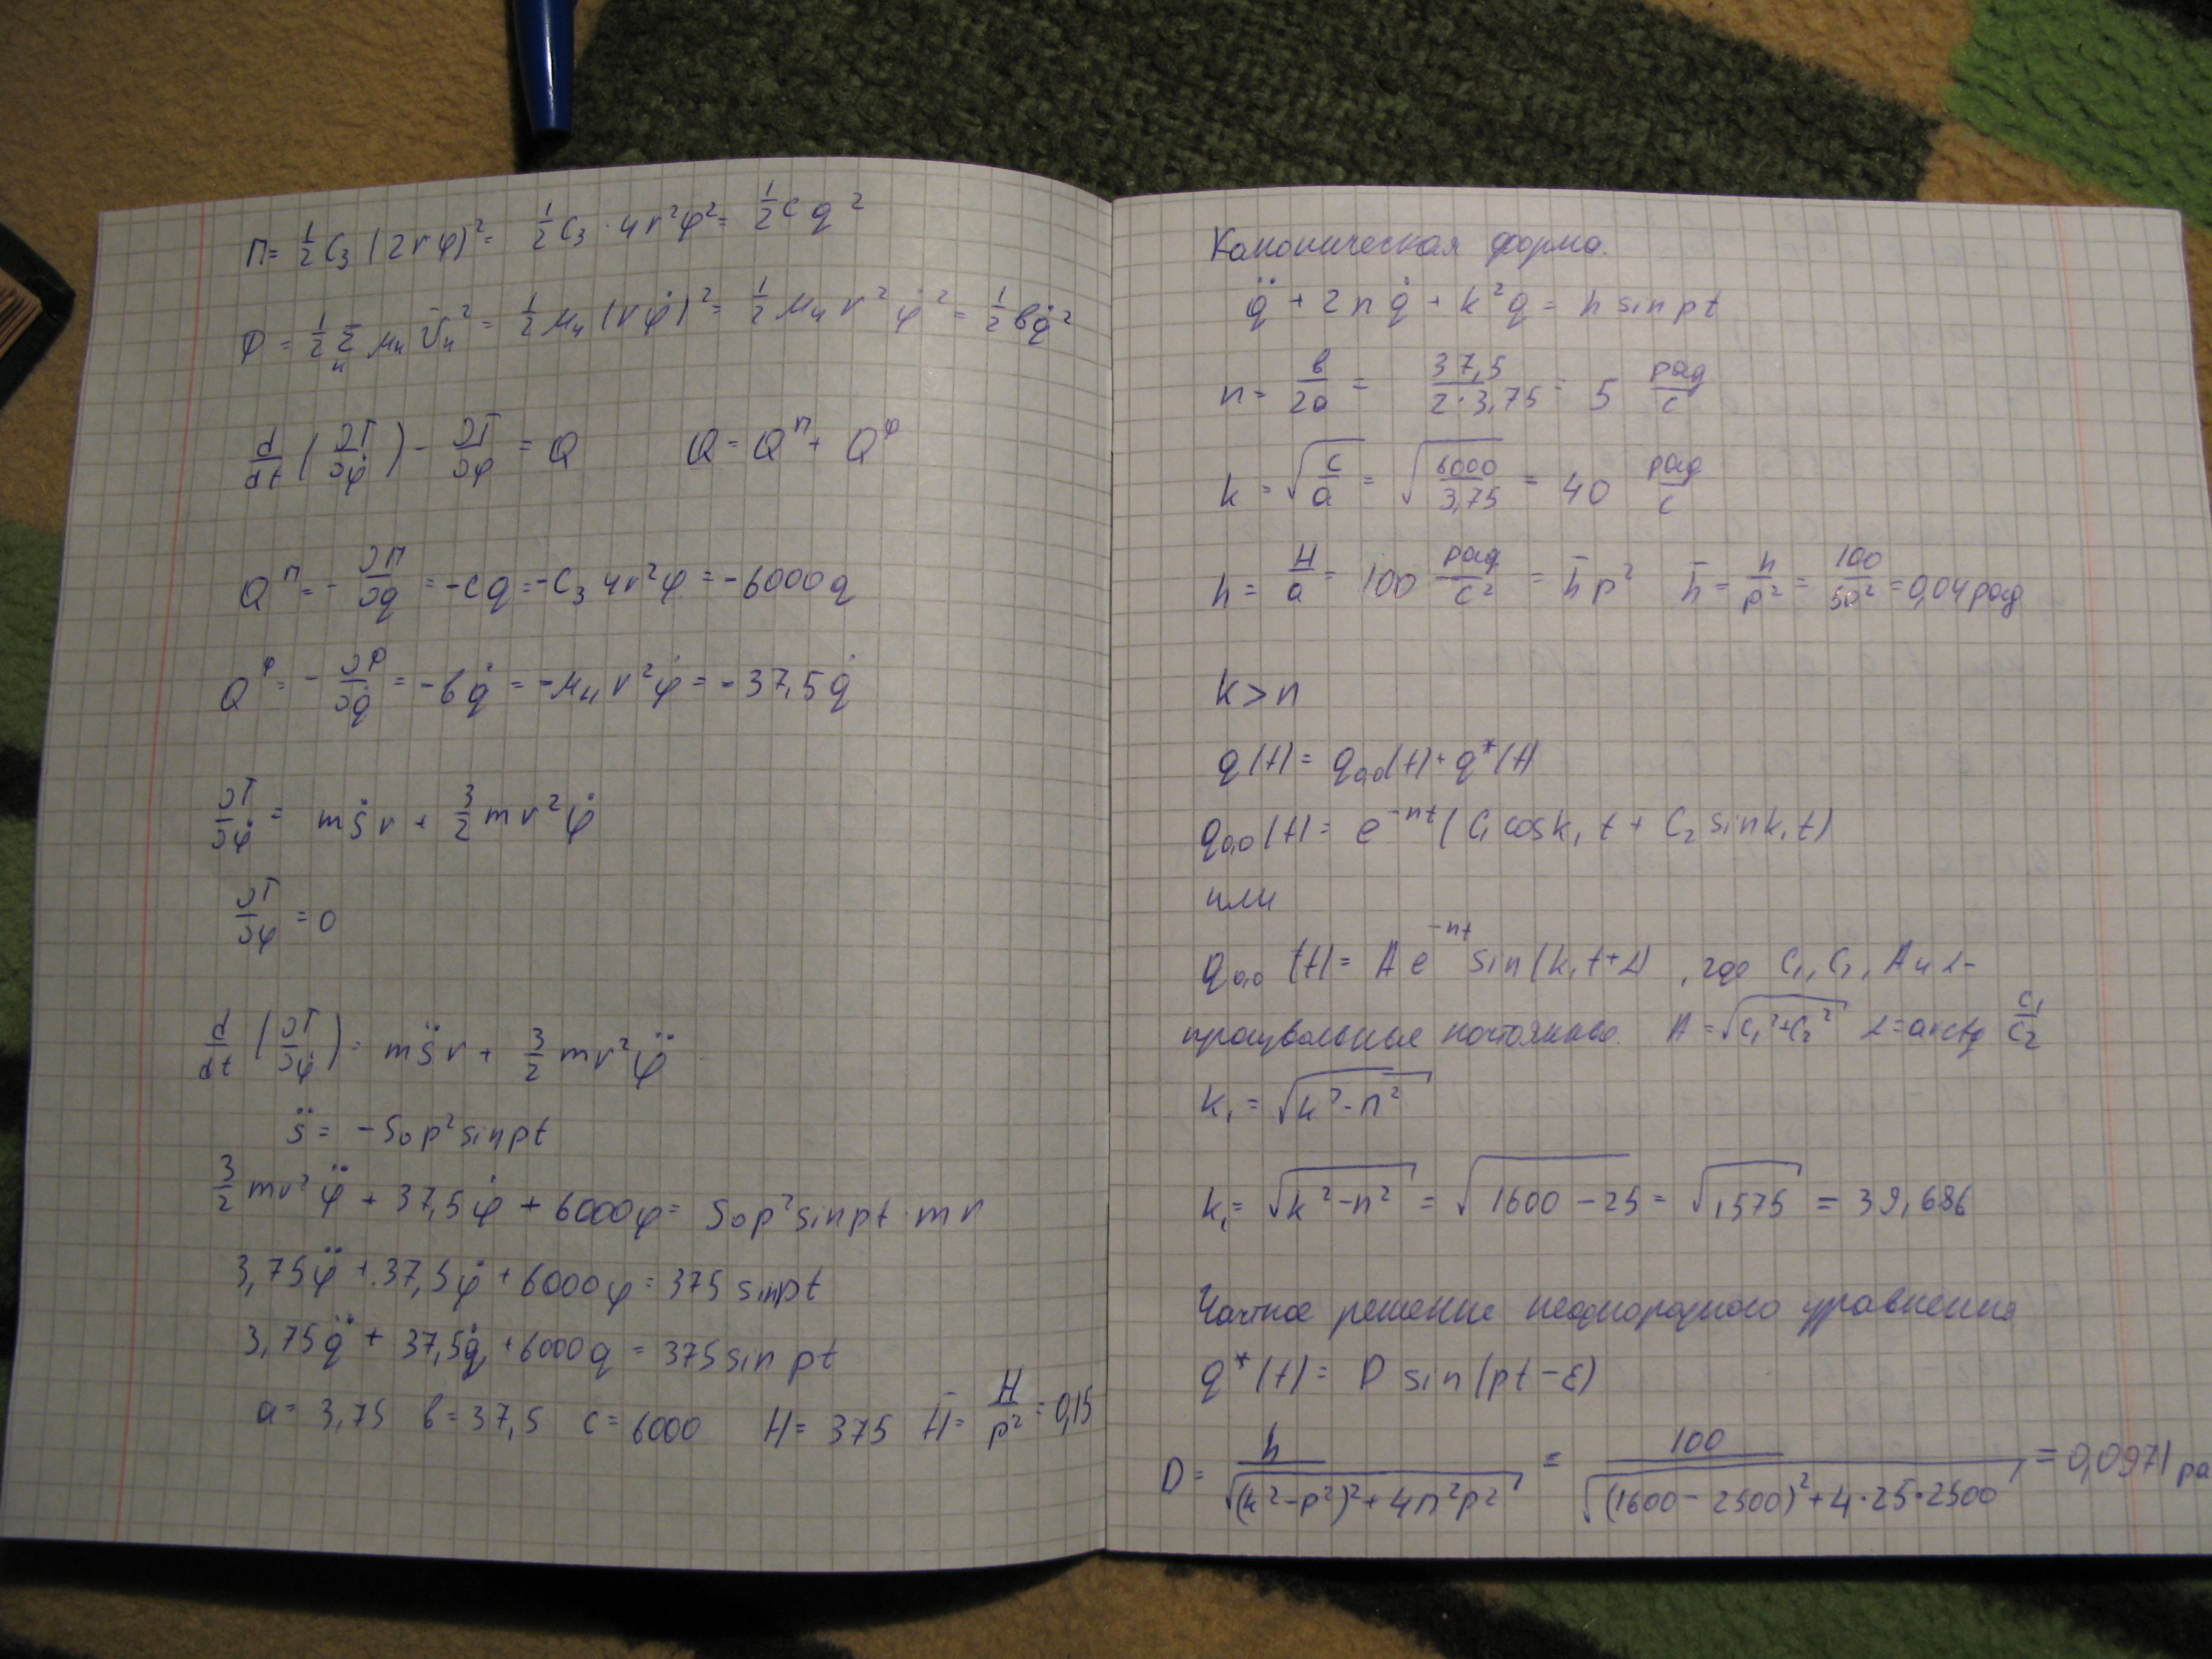 П = 1/2 c₃ (2rφ)² = 1/2 c₃ · 4r²φ² = 1/2 c q²
Φ = 1/2 Σₙ μₙ v̄ₙ² = 1/2 μ₄ (rφ̇)² = 1/2 μ₄ r² φ̇² = 1/2 в q̇²
d/dt (∂T/∂φ̇) - ∂T/∂φ = Q Q = Qᴨ + Qᶲ
Qᴨ = - ∂П/∂q = -cq = -c₃ 4r²φ = -6000q
Qᶲ = - ∂Φ/∂q̇ = -вq̇ = -μ₄ r²φ̇ = -37,5q̇
∂T/∂φ̇ = mṡr + 3/2 mr²φ̇
∂T/∂φ = 0
d/dt (∂T/∂φ̇) = ms̈r + 3/2 mr²φ̈
s̈ = -s₀p² sin pt
3/2 mr²φ̈ + 37,5φ̇ + 6000φ = s₀p² sin pt · mr
3,75φ̈ + 37,5φ̇ + 6000φ = 375 sin pt
3,75q̈ + 37,5q̇ + 6000q = 375 sin pt
a = 3,75 в = 37,5 c = 6000 H = 375 H̄ = H/p² = 0,15
Каноническая форма.
q̈ + 2nq̇ + k²q = h sin pt
n = в/2a = 37,5/2·3,75 = 5 рад/с
k = √(c/a) = √(6000/3,75) = 40 рад/с
h = H/a = 100 рад/с² = h̄p² h̄ = h/p² = 100/50² = 0,04 рад
k > n
q(t) = q₀,₀(t) + q*(t)
q₀,₀(t) = e⁻ⁿᵗ (C₁ cos k₁t + C₂ sin k₁t)
или
q₀,₀(t) = A e⁻ⁿᵗ sin(k₁t + α), где C₁, C₂, A и α -
произвольные постоянные. A = √(C₁² + C₂²) α = arctg C₁/C₂
k₁ = √(k² - n²)
k₁ = √(k² - n²) = √(1600 - 25) = √1575 = 39,686
Частное решение неоднородного уравнения
q*(t) = D sin(pt - ε)
D = h/√((k² - p²)² + 4n²p²) = 100/√((1600 - 2500)² + 4·25·2500) = 0,0971 ра